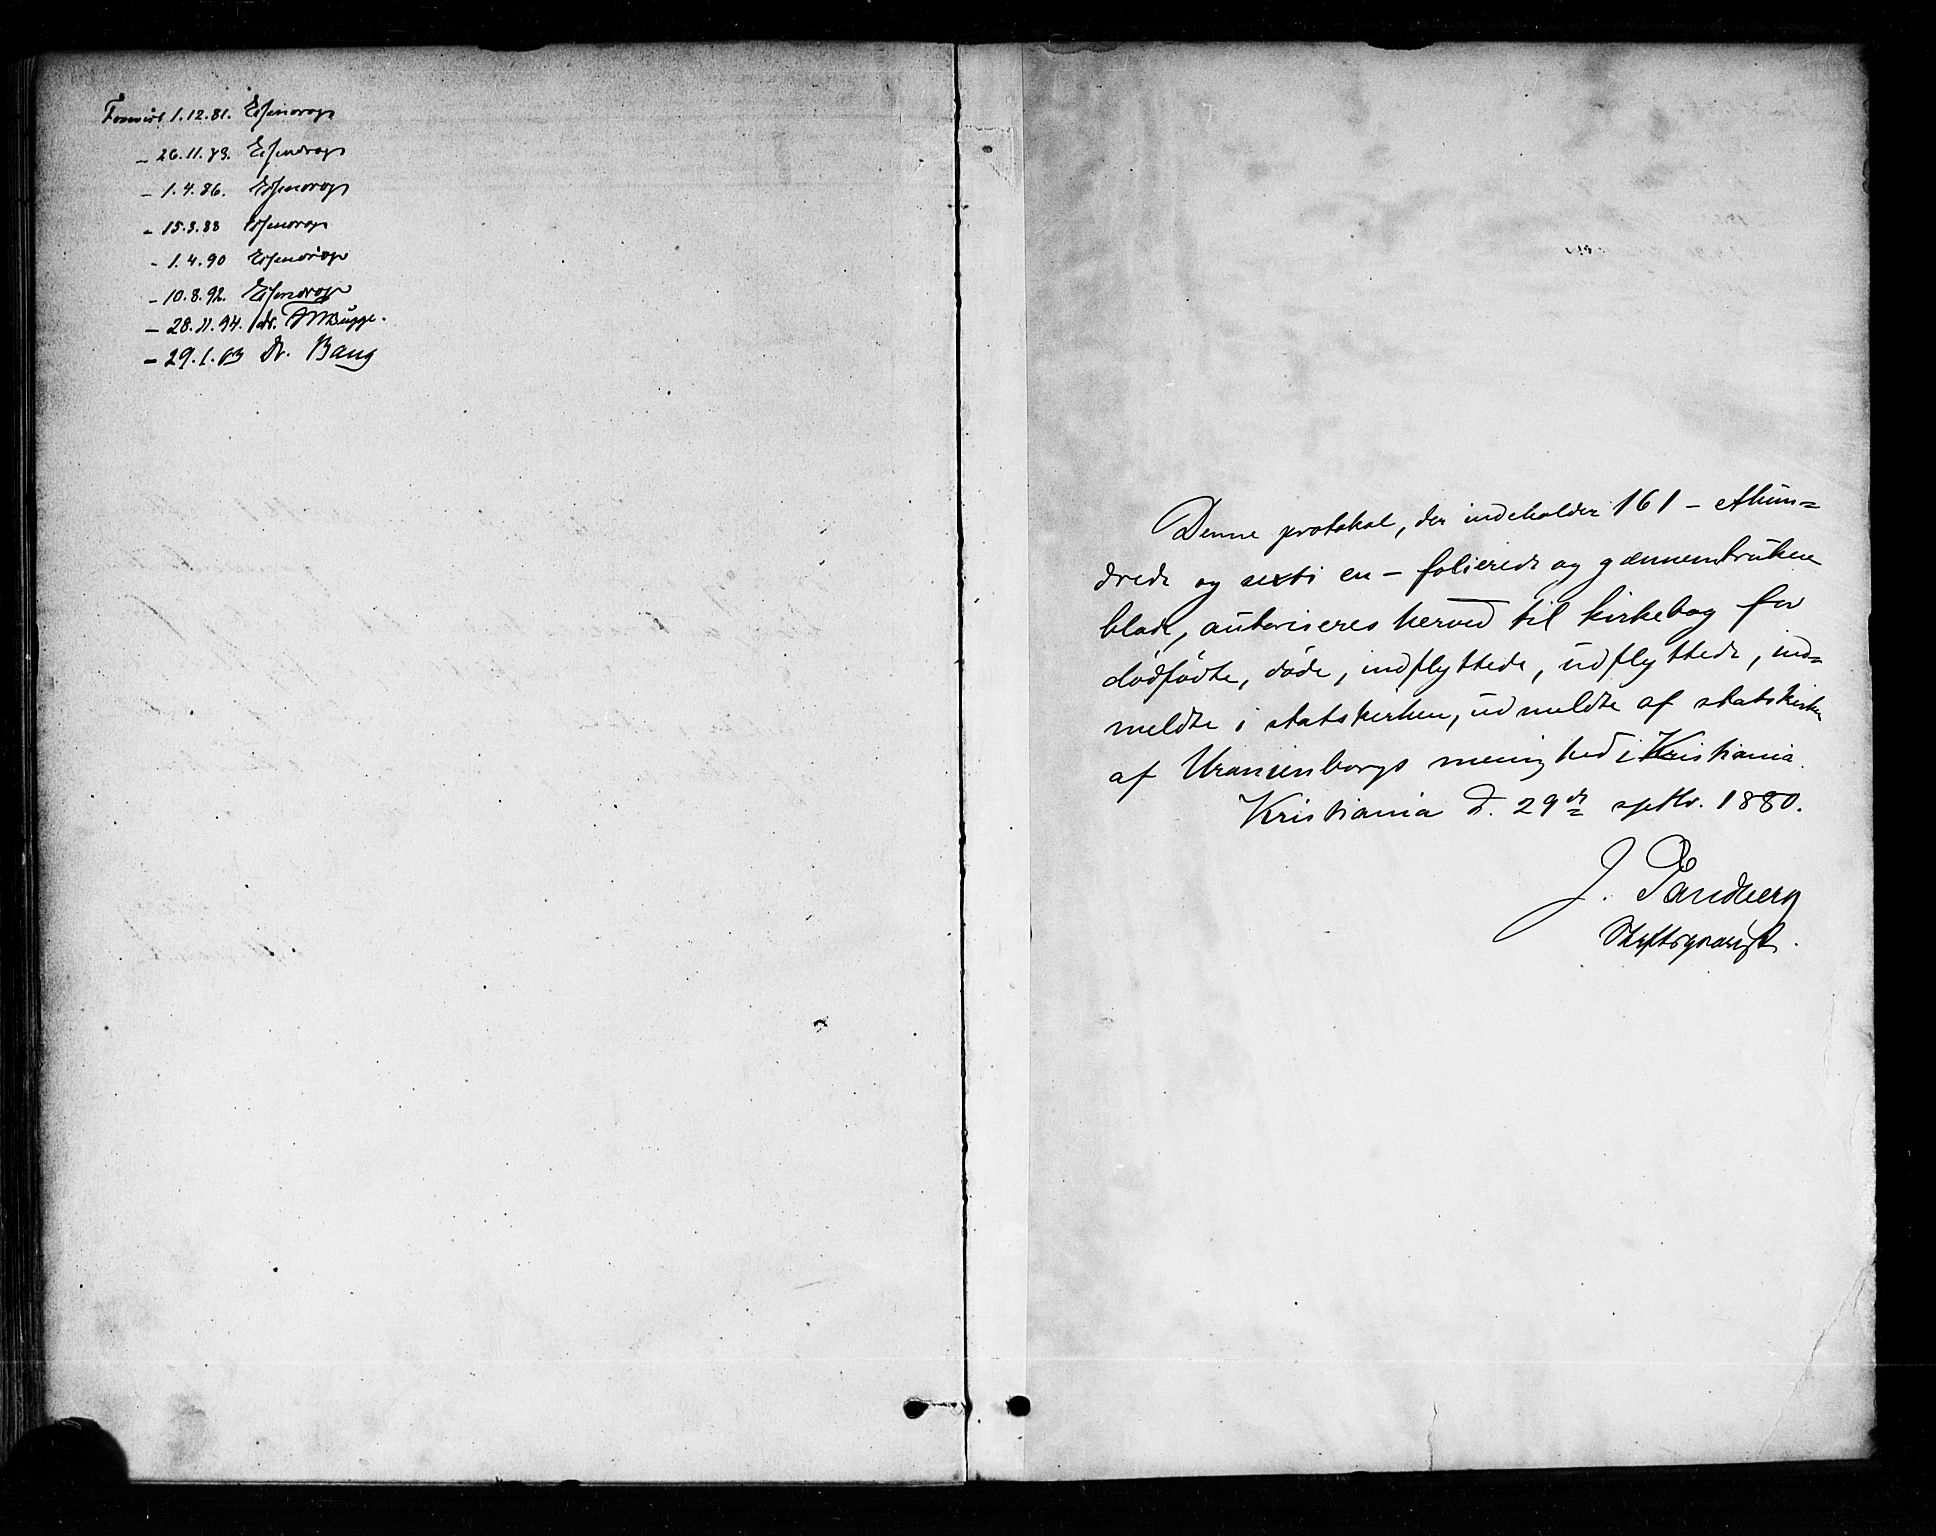 Forevist 1.12.81. Essendrop
- 26.11.83. Essendrop
- 1.4.86. Essendrop
- 15.3.88 Essendrop
- 1.4.90 Essendrop
- 10.8.92. Essendrop
- 28.11.94. dr. FWBugge.
- 29.1.03 Dr. Bang
Denne protokol, der indeholder 161 - ethun=
drede og sexti en - folierede og gennemtrukne
blade, autoriseres herved til kirkebog for
dødfødte, døde, indflyttede, udflyttede, ind=
meldte i statskirken, udmeldte af statskirken
af Uranienborgs menighed i Kristiania.
Kristiania d. 29de septbr. 1880.
J. Sandberg
Stiftsprovst.